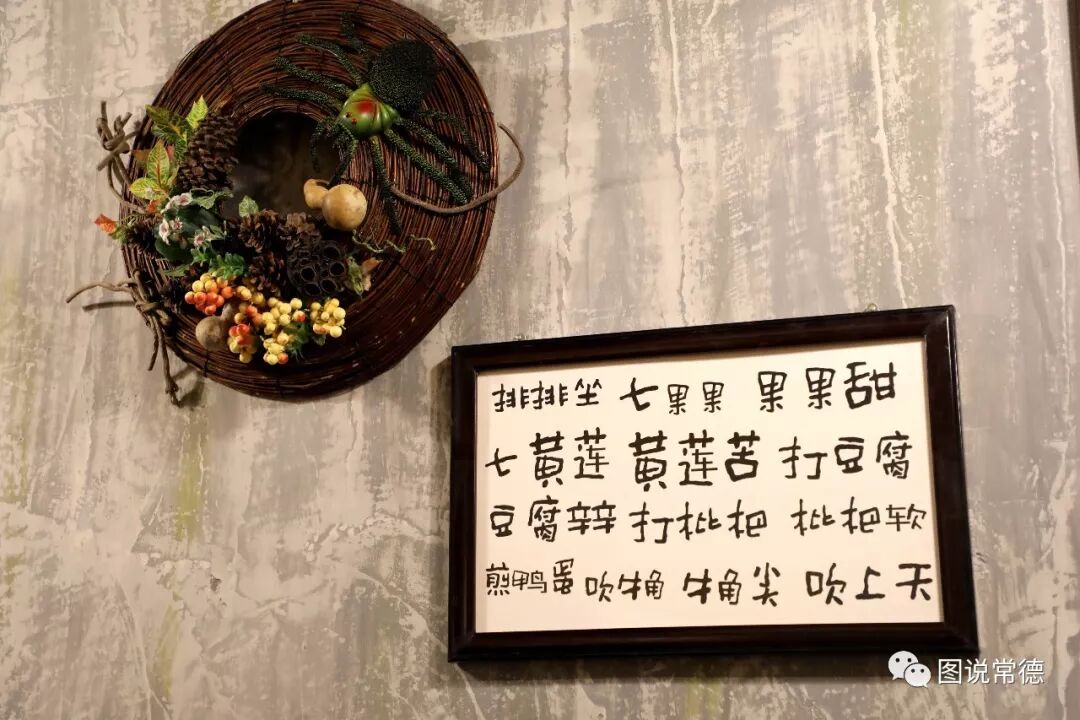 排排坐 七果果 果果甜
七黄莲 黄莲苦 打豆腐
豆腐辣 打枇杷 枇杷软
煎鸭蛋 吹牛角 牛角尖 吹上天
图说常德